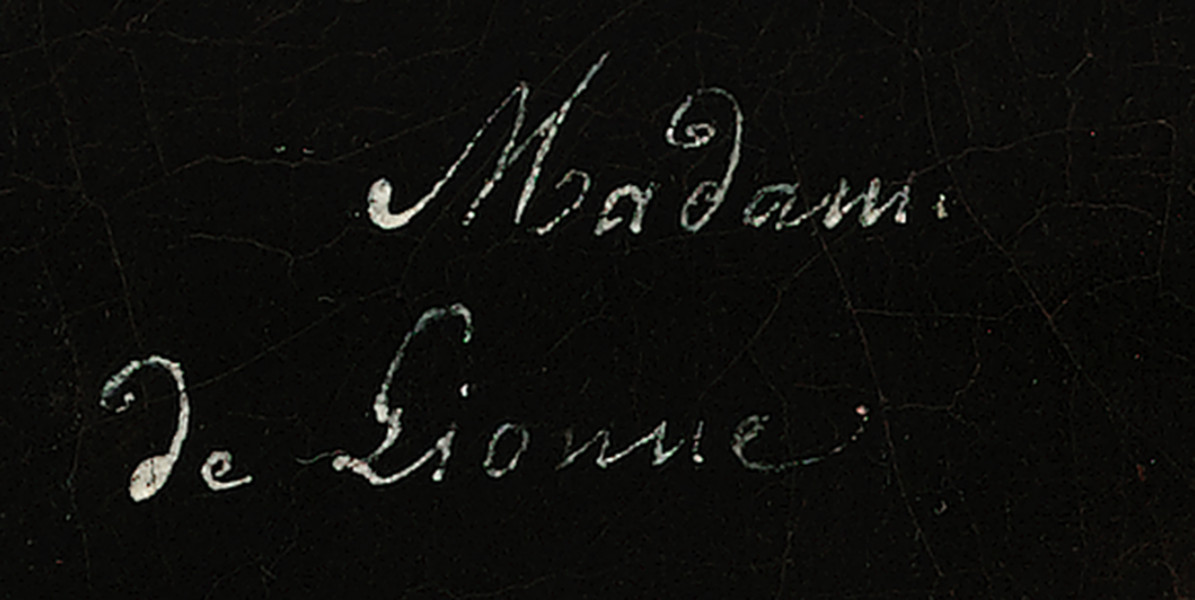 Madam.
de Lionne